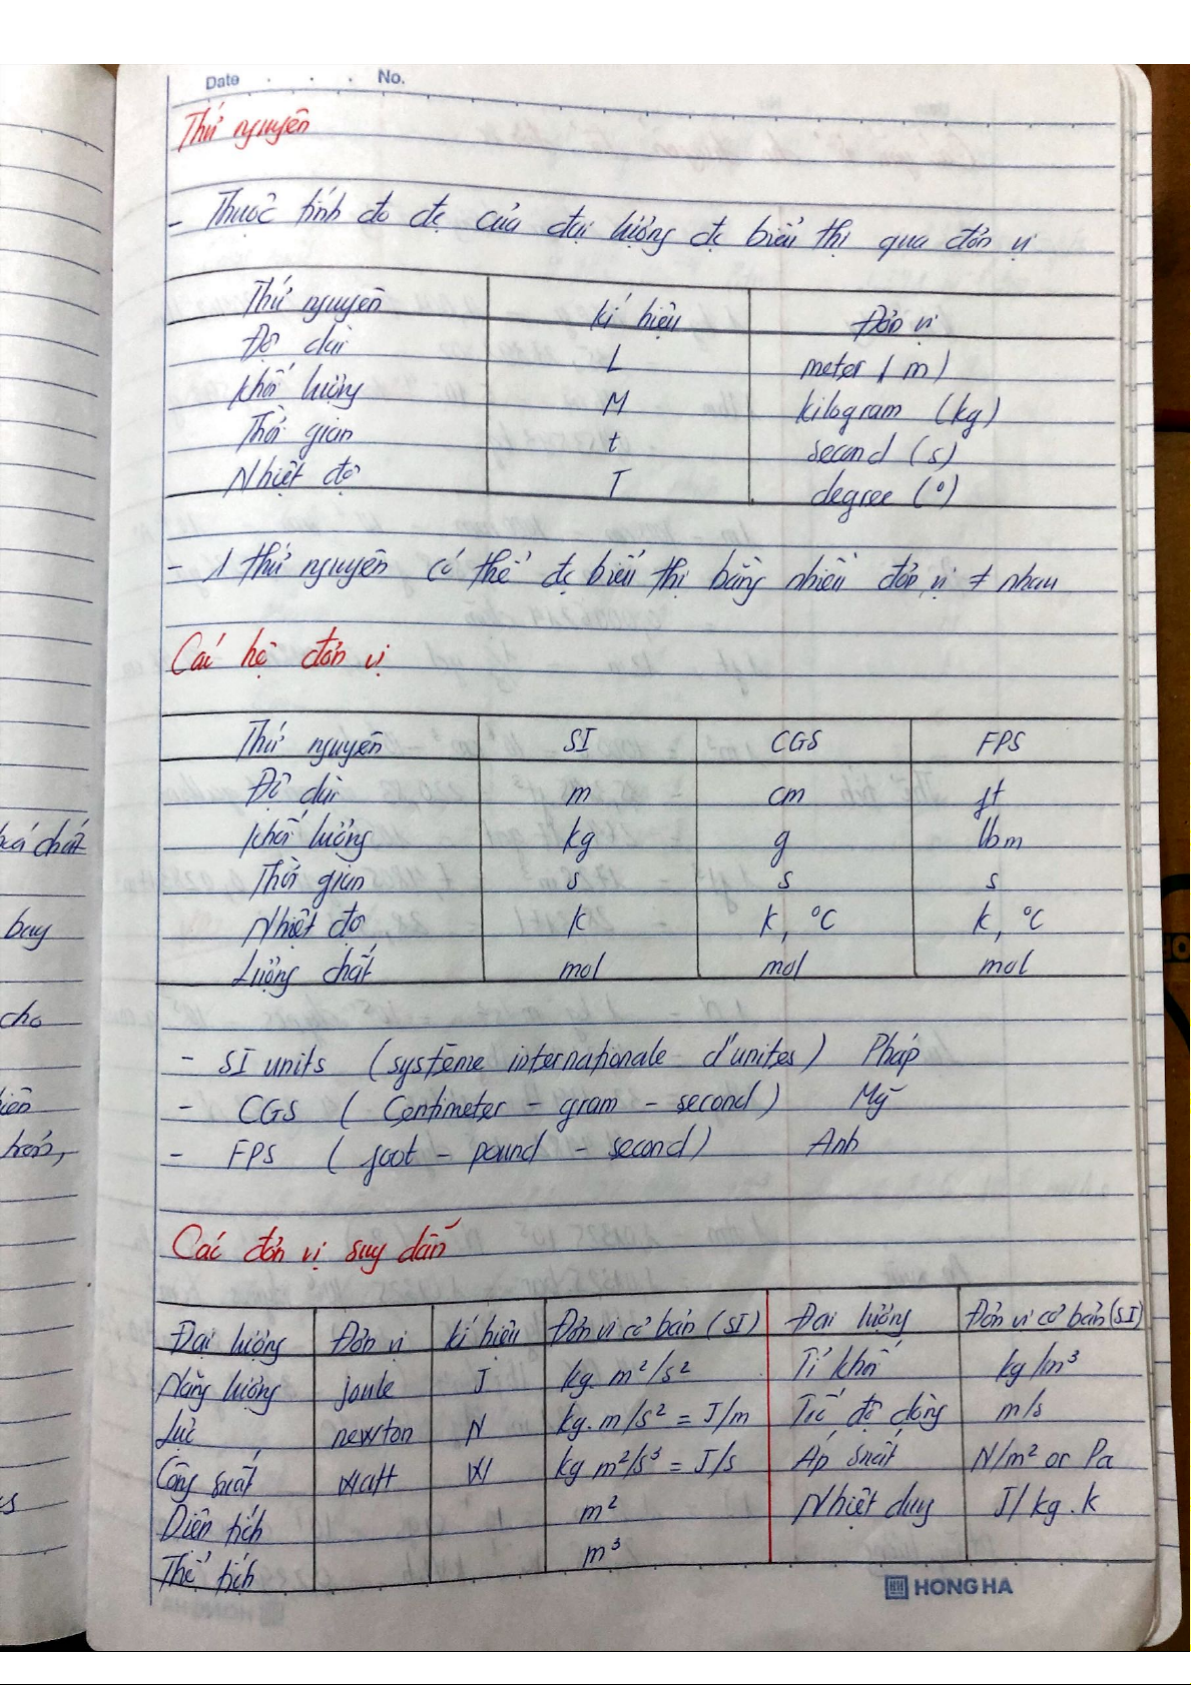 Date . . . No.
Thứ nguyên
- Thuộc tính đo đc của đại lượng đc biểu thị qua đơn vị
Thứ nguyên kí hiệu Đơn vị
Độ dài L meter (m)
Khối lượng M kilogram (kg)
Thời gian t second (s)
Nhiệt độ T degree (°)
- 1 thứ nguyên có thể đc biểu thị bằng nhiều đơn vị ≠ nhau
Các hệ đơn vị
Thứ nguyên SI CGS FPS
Độ dài m cm ft
Khối lượng kg g lbm
Thời gian s s s
Nhiệt độ K K, °C K, °C
Lượng chất mol mol mol
- SI units (système internationale d'unites) Pháp
- CGS (Centimeter - gram - second) Mỹ
- FPS (foot - pound - second) Anh
Các đơn vị suy dẫn
Đại lượng Đơn vị kí hiệu Đơn vị cơ bản (SI) Đại lượng Đơn vị cơ bản (SI)
Năng lượng joule J kg. m²/s² Tỉ khối kg/m³
Lực newton N kg. m/s² = J/m Tốc độ dòng m/s
Công suất watt W kg m²/s³ = J/s Áp suất N/m² or Pa
Diện tích m² Nhiệt dung J/kg.k
Thể tích m³
HONG HA
á chất
bay
cho